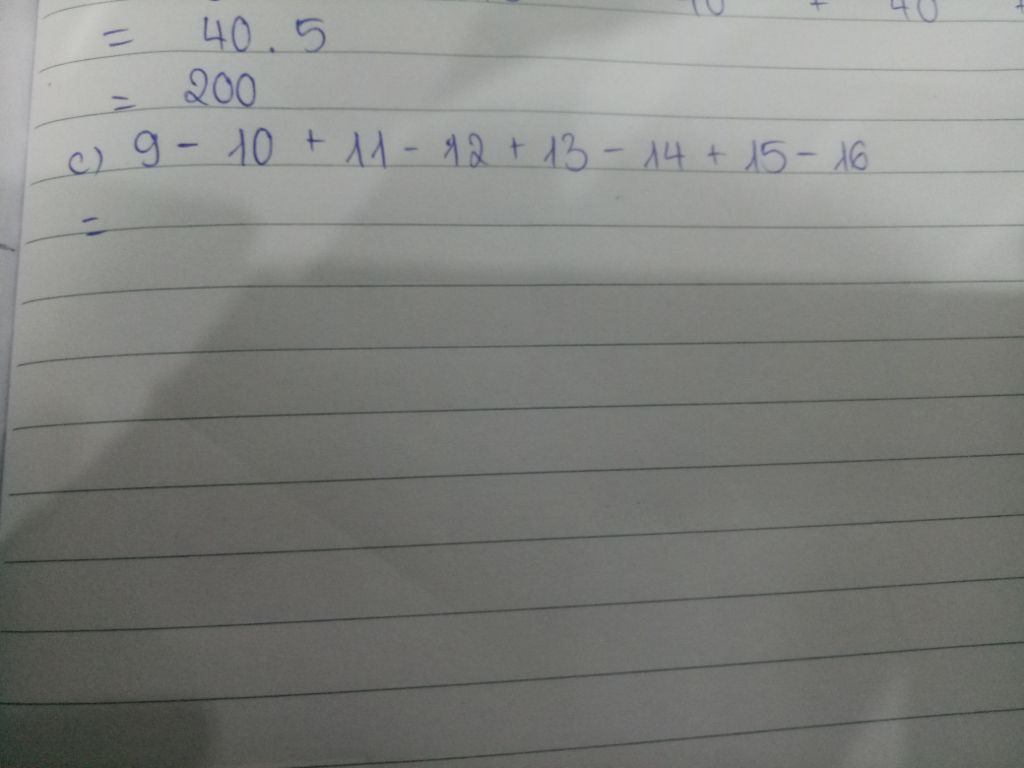 40 + 40
= 40 . 5
= 200
c) 9 - 10 + 11 - 12 + 13 - 14 + 15 - 16
=